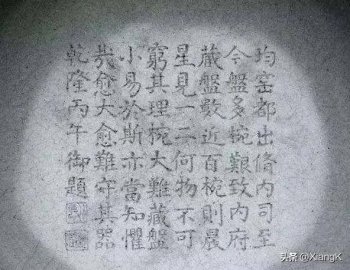 均窑都出脩内司至
今盤多椀艱致内府
藏盤數近百椀則晨
星見一二何物不可
窮其理椀大難藏盤
小易於斯亦當知懼
㢤愈大愈難守其器
乾隆丙午御題
头条 @XiangK